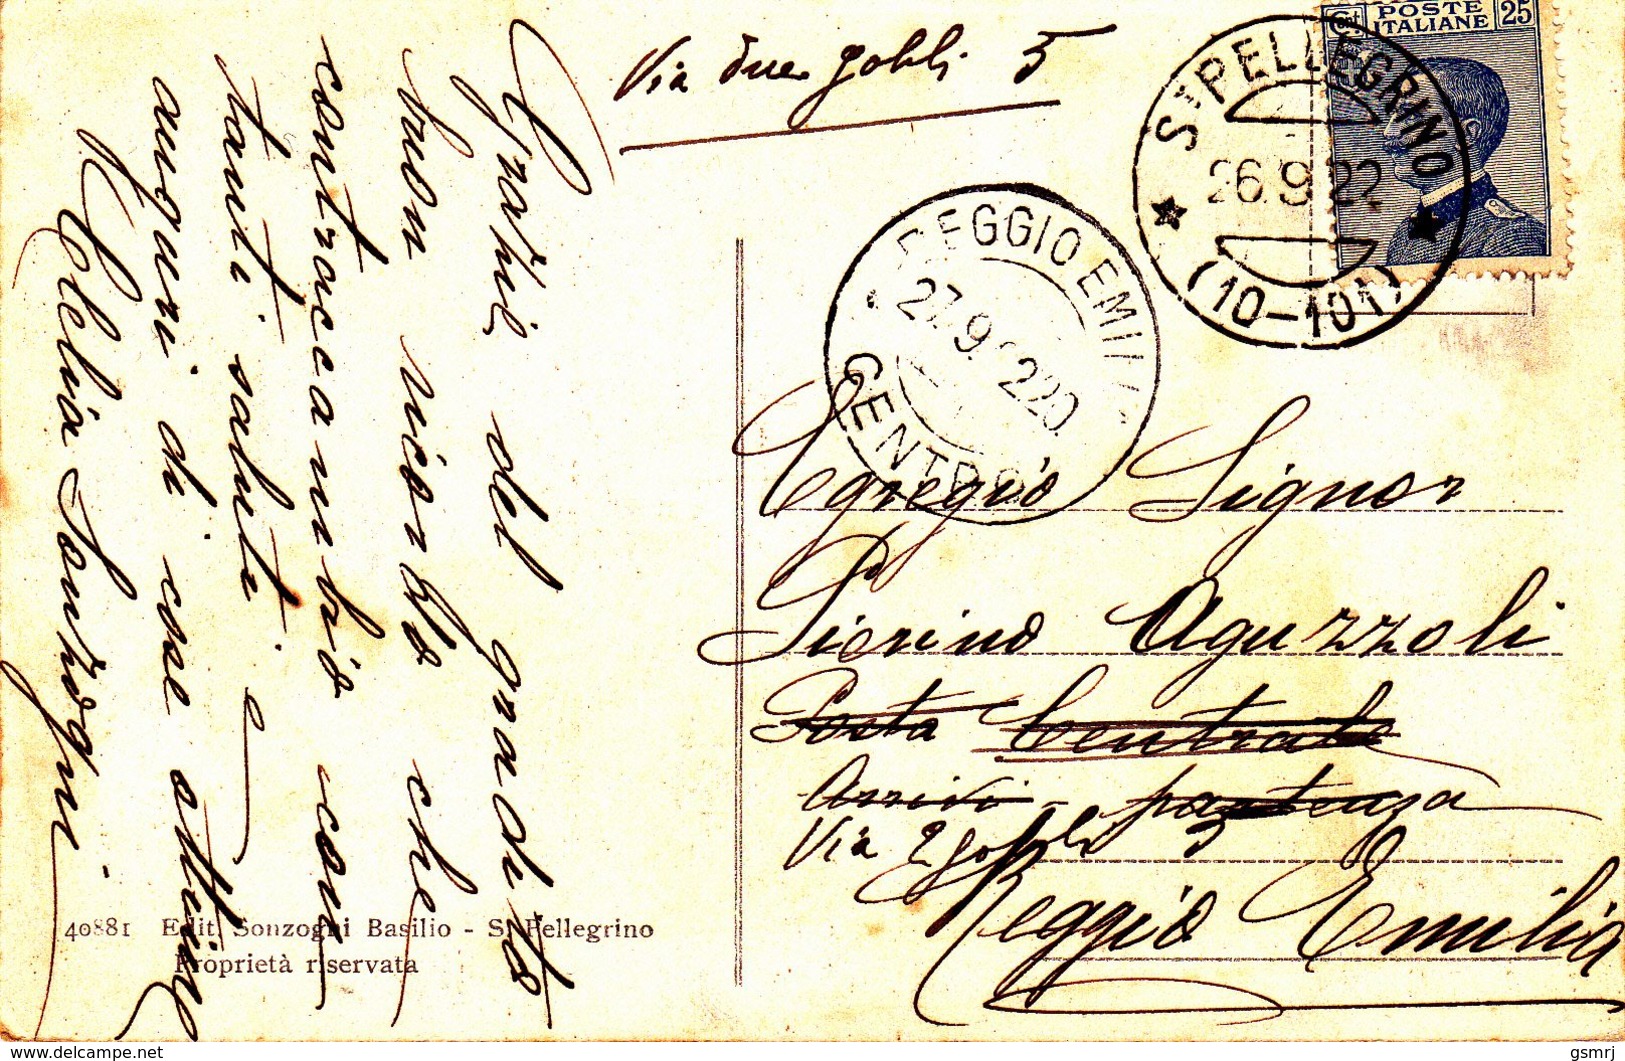 Via due gobbi 5
Cent. POSTE ITALIANE 25
S. PELLEGRINO
26.9.22
(10-101)
REGGIO EMILIA
27.9. 22 20
CENTRO
Grazie del gradito
buon ricordo che
contraccambio con
tanti saluti e
auguri di cose ottime
Clelia Sonzogni
Egregio Signor
Pierino Aguzzoli
Posta Centrale
Arrivi - partenza
Via 2 gobbi 5
Reggio Emilia
40881 Edit. Sonzogni Basilio - S. Pellegrino
Proprietà riservata
www.delcampe.net
gsmrj